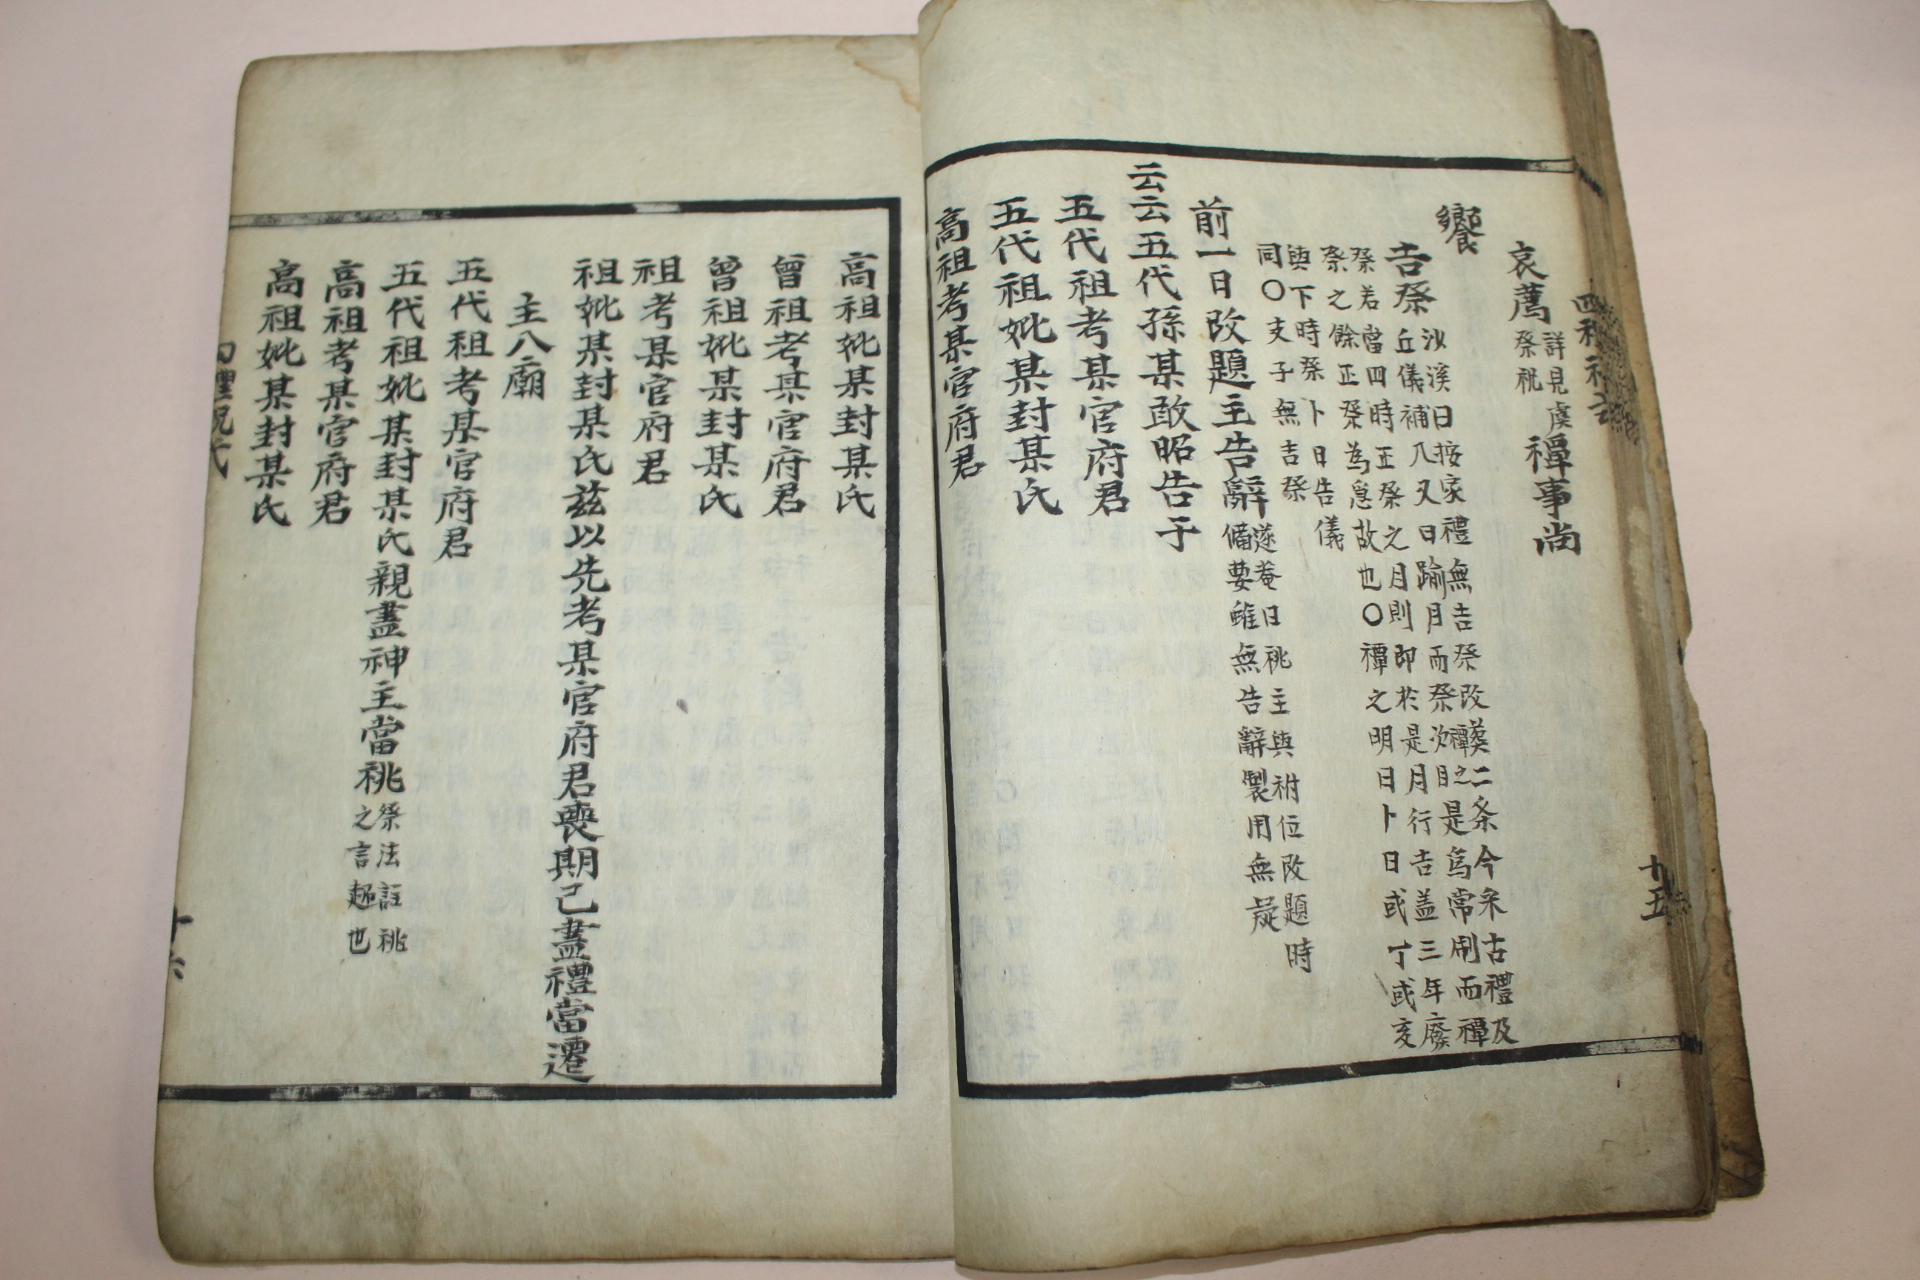 哀薦詳見虞祭祝禫事尚
饗
吉祭沙溪曰按家禮無吉祭改葬二条今采古禮及
丘儀補入又曰踰月而祭次禫之是為常制而禫
祭若當四時正祭之月則即於是月行吉盖三年廢
祭之餘正祭為急故也○禫之明日卜日或丁或亥
與下時祭卜日告儀
同○支子無吉祭
前一日改題主告辭遂菴曰祧主與祔位改題時
備要雖無告辭製用無疑
云云五代孫某敢昭告于
五代祖考某官府君
五代祖妣某封某氏
高祖考某官府君
高祖妣某封某氏
曾祖考某官府君
曾祖妣某封某氏
祖考某官府君
祖妣某封某氏玆以先考某官府君喪期己盡禮當遷
主入廟
五代祖考某官府君
五代祖妣某封某氏親盡神主當祧祭法註祧之言超也
高祖考某官府君
高祖妣某封某氏
十五